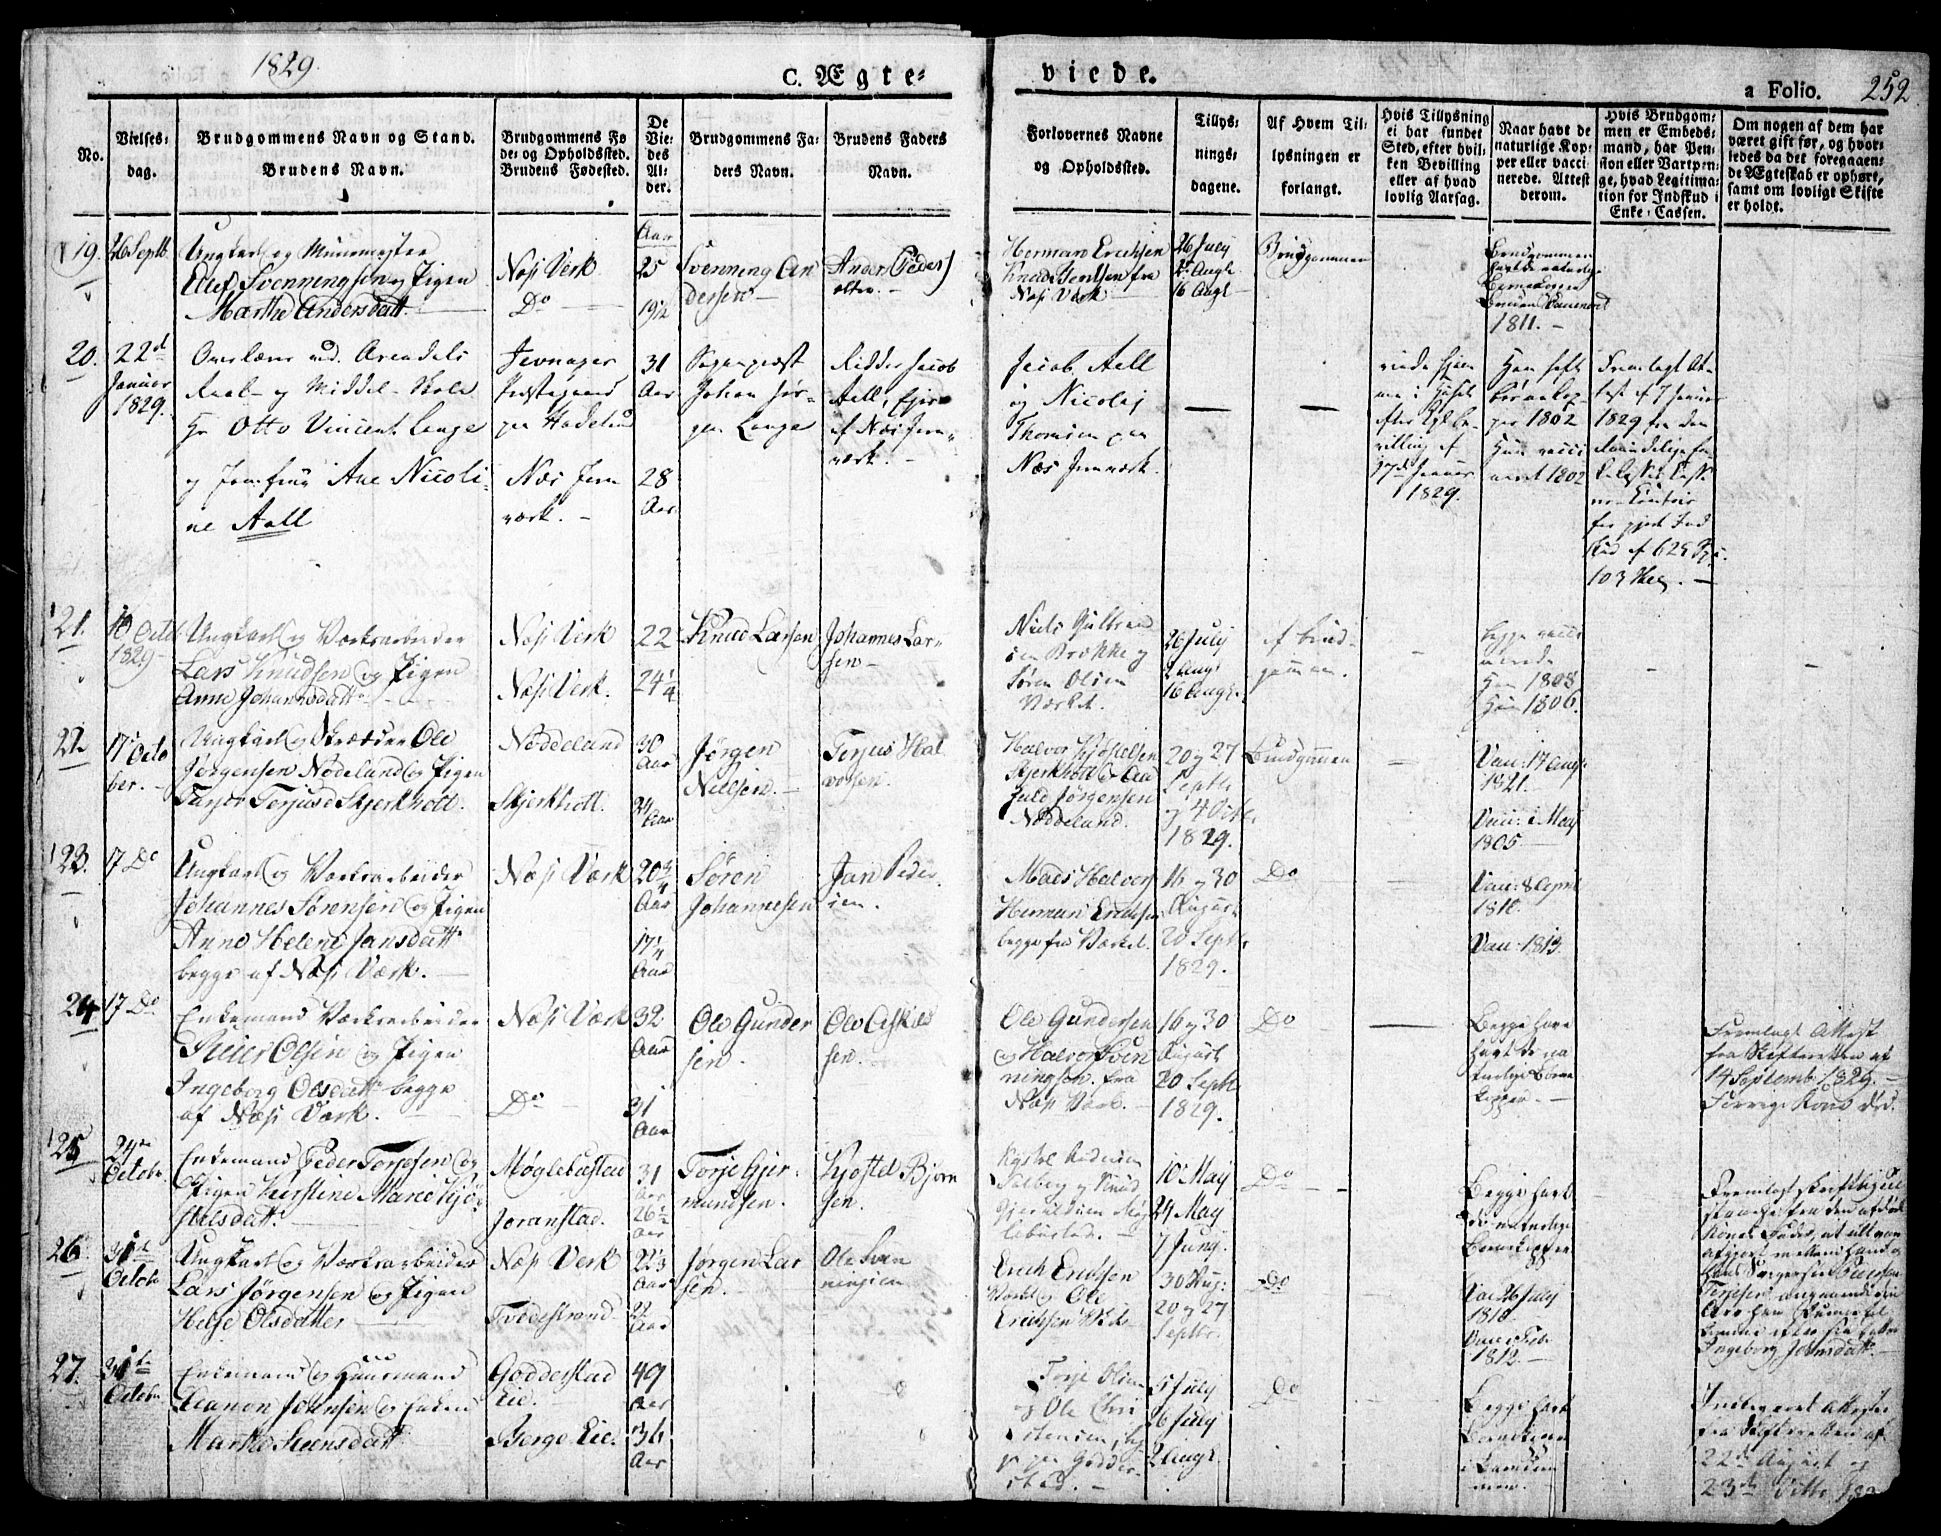 1829.
C. Ægte-
viede.
a Folio. 252.
No.
Vielses-
dag.
Brudgommens Navn og Stand.
Brudens Navn.
Brudgommens Fø
de- og Opholdssted.
Brudens Fødested.
De
Vie-
des
Al-
der.
Brudgommens Fa-
ders Navn.
Brudens Faders
Navn.
Forlovernes Navne
og Opholdssted.
Tillys-
nings-
dagene.
Af Hvem Til-
lysningen er
forlangt.
Hvis Tillysning
ei har fundet
Sted, efter hvil-
ken Bevilling
eller af hvad
lovlig Aarsag.
Naar havt de
naturlige Kop-
per eller vacci-
nerede. Attest
derom.
Hvis Brudgom-
men er Embeds-
mand, har Pen-
sion eller Vartpen-
ge, hvad Legitima-
tion for Indskud i
Enke-Cassen.
Om nogen af dem har
været gift før, og hvor-
ledes da det foregaaen-
de Ægteskab er ophørt,
samt om lovligt Skifte
er holdt.
19. 26 Septb.
Ungkarl og
Oluf Svenningsen og Pigen
Martha Andersdatt.
Næs Verk
Do
Aar
25
19 1/2
Svenning An
dersen
Anders (Peder)
Herman Erichsen
Knud Jentsen fra
Næs Værk
26 July
2 Augt
16 Augt
Brudgommen
Brudgommen
1811.
20. 22d
Januar
1829.
Overlærer ved Arendals
Real- og Middel-Skole
Hr Otto Vincent Lange
og Jomfrue Ane Nicoli-
ne Aall
Jevnager
Præstegaard
paa Hadeland
Næs Jern
værk.
31
Aar
28
Aar
Sogneprest
Johan Jør-
gen Lange
Ridder Jacob
Aall, Ejer
af Næs Jern-
værk.
Jacob Aall
og Nicolaj
Thomsen paa
Næs Jernværk.
viede hjem
me i Huset
efter Kgl. Be-
villing af
17de Januar
1829.
Han havt
Børnekop-
per 1802
Hun vacci
neret 1802
Fremlagt At-
test af 7 Januar
1829 fra den
for gjort Ind
skud af 625 Spd.
103 Skg.
21. 10 Octb
1829
Ungkarl og Værksarbeider
Lars Knudsen og Pigen
Anne Johannsdatt
Næs Verk
Næs Verk.
22
24 1/4
Knud Larsen
Johannes Lar-
sen
Niels Gulbrand
sen Brække og
Søren Olsen
Værket.
26 July
2 Augt
16 Augt.
af Brud-
gommen.
begge vacci
nerede
Han 1808
Hun 1806.
22. 17de Octo
ber.
Ungkarl og Skrædder Ole
Jørgensen Nødeland og Pigen
Terjusd Skjerkholt.
Nøddeland
Skjerkholt.
30
Aar
24
Aar
Jørgen
Nielsen.
Terjus Hal
vorsen.
Halvor Kjøstelsen
Skjerkholt og Aa
Jørgensen
Nøddeland.
20 og 27
Septbr
og 4 Octbr.
1829.
Brudgommen
Vac: 17 Aug.
1821.
Vac: 1 May
1805
23. 17 Do
Ungkarl og Værksarbeider
Johannes Sørensen og Pigen
Anne Helene Jansdatt
begge af Næs Værk.
Næs Værk
20 1/4
Aar
17 1/4
Aar
Søren
Johannesen
Jan Peder
sen.
Mads Halvors
Herman Erichsen
begge fra Værket.
16 og 30
August
20 Septbr
1829.
Do
Vac: 8 April
1810.
Vac: 1813.
24. 17 Do
Enkemand Værksarbeider
Steier Olsen og Pigen
Ingeborg Olsdatt begge
af Næs Værk.
Næs Værk
Do
32
Aar
31
Aar
Ole Gunder
sen.
Ole Askild
sen.
Ole Gundersen
og Halvor Sven
ningsen fra
Næs Værk.
16 og 30
August
20 Septbr
1829.
Do
Begge have
havt de na
turlige Børne
kopper.
Fremlagt Attest
fra Skifteretten af
14 Septemb. 1829.
Forrige Kone død.
25 24de
Octobr.
Enkemand Peder Torjesen og
Pigen Kirstine Marie Kjø-
stelsdatt.
Møglebustad
Joranstad.
31
Aar
26 1/2
Aar
Torje Gjer-
mundsen.
Kjøstel Bjørn
sen.
10 May
24 May
7 Juny.
Do
Begge havt
de naturlige
Børnekopper
Fremlagt skriftlig til
Ingeborg Jensdatt.
26. 31te
Octobr
Ungkarl og Værksarbeider
Lars Jørgensen og Pigen
Helje Olsdatter
Næs Verk
Tvedestrand
22 1/3
Aar
22
Aar
Jørgen Lar
sen.
Ole Sven
ningsen
Erich Erichsen
Værket og Ole
Erichsen
30 Aug:
20 og 27
Septbr.
Do
Vac 26 July
1810.
1812.
27. 31te
Octobr
Enkemand og Huusmand
Leanon Johnsen og Enken
Marthe Steensdatt
Godderstad
Eie.
Berge Eie.
49
Aar
36
Aar
Torje Olsen
og Ole Chri
stensen, beg
ge paa Godder-
stad.
5 July
26 July
2 Augt.
Do
Begge havt
Børnekopper
i Barndom
men.
fra Skifteretten af
22de August og
23de Octbr 182